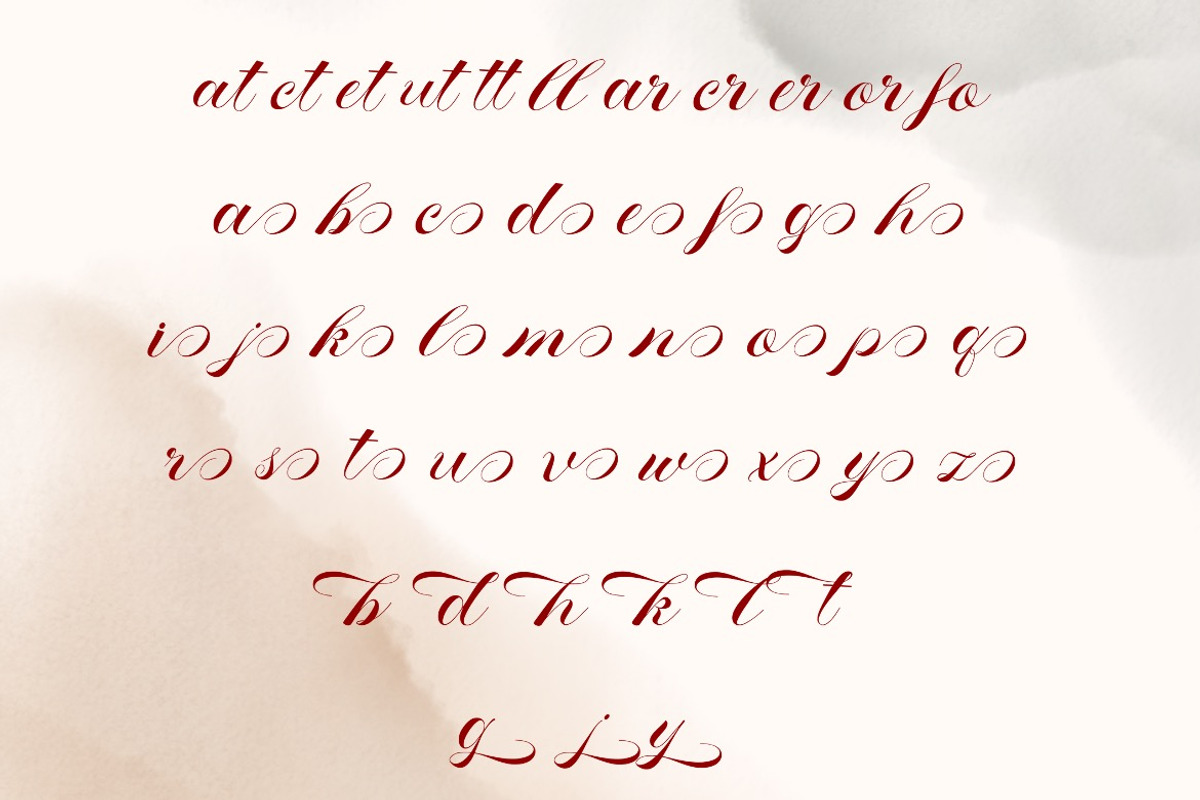 at ct et ut tt ll ar cr er or fo
a b c d e f g h
i j k l m n o p q
r s t u v w x y z
b d h k l t
g j y